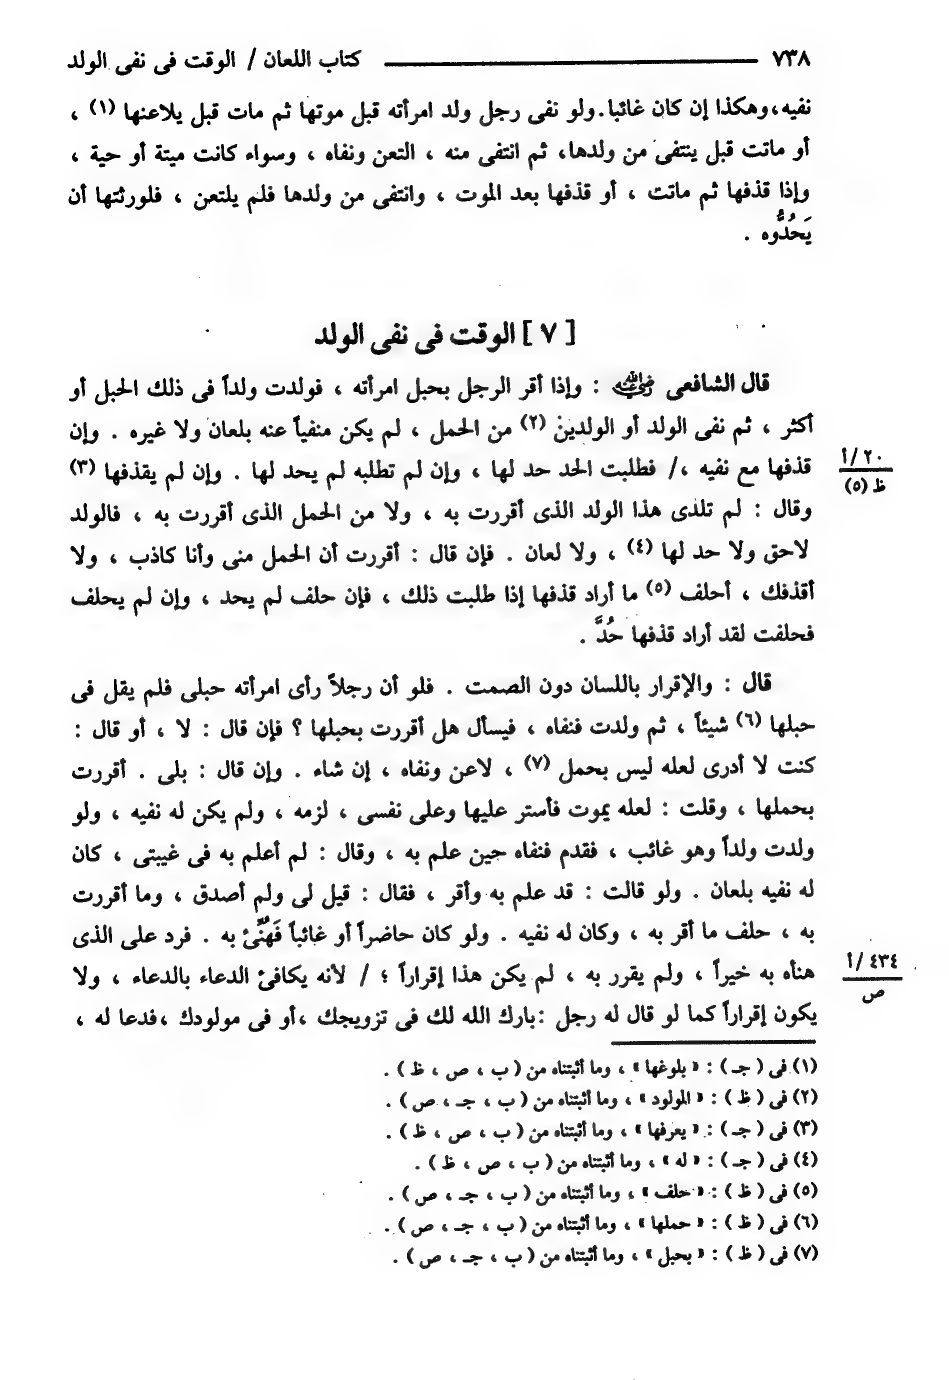 ٧٣٨ كتاب اللعان / الوقت فى نفى الولد
نفيه، وهكذا إن كان غائبا. ولو نفى رجل ولد امرأته قبل موتها ثم مات قبل يلاعنها (١) ،
أو ماتت قبل ينتفى من ولدها، ثم انتفى منه ، التعن ونفاه ، وسواء كانت ميتة أو حية ،
وإذا قذفها ثم ماتت ، أو قذفها بعد الموت ، وانتفى من ولدها فلم يلتعن ، فلورثتها أن
يَحُدُّوه .
[ ٧ ] الوقت فى نفى الولد
قال الشافعى رضي الله عنه : وإذا أقر الرجل بحبل امرأته ، فولدت ولداً فى ذلك الحبل أو
أكثر ، ثم نفى الولد أو الولدين (٢) من الحمل ، لم يكن منفياً عنه بلعان ولا غيره . وإن
قذفها مع نفيه ،/ فطلبت الحد حد لها ، وإن لم تطلبه لم يحد لها . وإن لم يقذفها (٣)
٢٠ /أ
ظ (٥)
وقال : لم تلدى هذا الولد الذى أقررت به ، ولا من الحمل الذى أقررت به ، فالولد
لاحق ولا حد لها (٤) ، ولا لعان . فإن قال : أقررت أن الحمل منى وأنا كاذب ، ولا
أقذفك ، أحلف (٥) ما أراد قذفها إذا طلبت ذلك ، فإن حلف لم يحد ، وإن لم يحلف
فحلفت لقد أراد قذفها حُدَّ .
قال : والإقرار باللسان دون الصمت . فلو أن رجلاً رأى امرأته حبلى فلم يقل فى
حبلها (٦) شيئاً ، ثم ولدت فنفاه ، فيسأل هل أقررت بحبلها ؟ فإن قال : لا ، أو قال :
كنت لا أدرى لعله ليس بحمل (٧) ، لاعن ونفاه ، إن شاء . وإن قال : بلى . أقررت
بحملها ، وقلت : لعله يموت فأستر عليها وعلى نفسى ، لزمه ، ولم يكن له نفيه ، ولو
ولدت ولداً وهو غائب ، فقدم فنفاه حين علم به ، وقال : لم أعلم به فى غيبتى ، كان
له نفيه بلعان . ولو قالت : قد علم به وأقر ، فقال : قيل لى ولم أصدق ، وما أقررت
به ، حلف ما أقر به ، وكان له نفيه . ولو كان حاضراً أو غائباً فَهُنِّئ به . فرد على الذى
هنأه به خيراً ، ولم يقرر به ، لم يكن هذا إقراراً ؛ / لأنه يكافئ الدعاء بالدعاء ، ولا
٤٣٤ /أ
ص
يكون إقراراً كما لو قال له رجل :بارك الله لك فى تزويجك ،أو فى مولودك ،فدعا له ،
(١) فى ( جـ ) : « بلوغها » ، وما أثبتناه من ( ب ، ص ، ظ ) .
(٢) فى ( ظ ) : « المولود » ، وما أثبتناه من ( ب ، جـ ، ص ) .
(٣) فى ( جـ ) : « يعرفها » ، وما أثبتناه من ( ب ، ص ، ظ ) .
(٤) فى ( جـ ) : « له » ، وما أثبتناه من ( ب ، ص ، ظ ) .
(٥) فى ( ظ ) : « حلف » ، وما أثبتناه من ( ب ، جـ ، ص ) .
(٦) فى ( ظ ) : « حملها » ، وما أثبتناه من ( ب ، جـ ، ص ) .
(٧) فى ( ظ ) : « بحبل » ، وما أثبتناه من ( ب ، جـ ، ص ) .